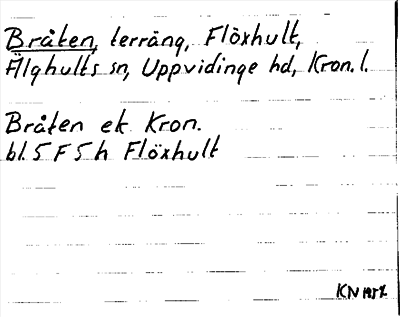 Bråten, terräng, Flöxhult,
Älghults sn, Uppvidinge hd, Kron. l.
Bråten ek Kron.
bl. 5 F 5 h Flöxhult
KN